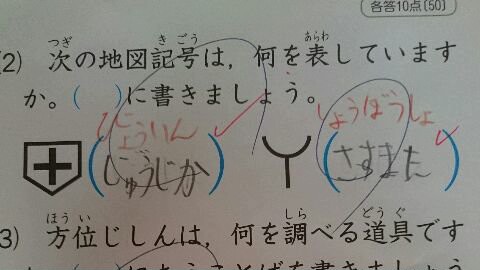 各答10点〔50〕
つぎ き ごう あらわ
2) 次の地図記号は，何を表しています
か。( )に書きましょう。
びょういん しょうぼうしょ
(じゅうじか) (さすまた)
ほう い しら どう ぐ
3) 方位じしんは，何を調べる道具です